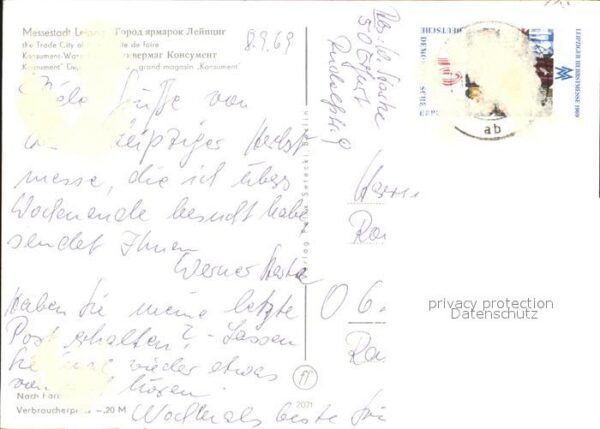 Messestadt Leipzig Город ярмарок Лейпциг
the Trade City of de foire
Konsument-War Универмаг Консумент
Konsument" De grand magasin „Konsument"
8.9.69
Viele Grüße von
der Leipziger Herbst
messe, die ich übers
Wochenende besucht habe
sendet Ihnen
Werner
Haben Sie meine letzte
Post erhalten? - Lassen
Sie mal wieder etwas
von hören!
Nochmals beste
Nach Farb
Verbraucherpreis -,20 M
2071
Verlag Felix Setecki, Berlin
50 Erfurt
Rudolphstr. 9
DEUTSCHE
DEMO
SCHE
REPU
LEIPZIGER HERBSTMESSE 1969
ab
Herrn
Ra
0 6
Ra
privacy protection
Datenschutz